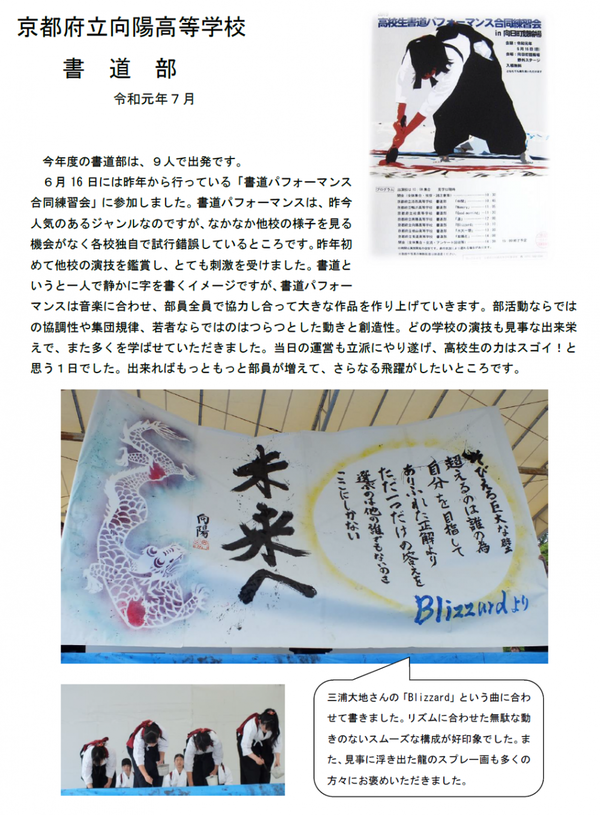 京都府立向陽高等学校
書 道 部
令和元年７月
高校生書道パフォーマンス合同練習会
in 向日町競輪場
今年度の書道部は、９人で出発です。
６月 16 日には昨年から行っている「書道パフォーマンス
合同練習会」に参加しました。書道パフォーマンスは、昨今
人気のあるジャンルなのですが、なかなか他校の様子を見る
機会がなく各校独自で試行錯誤しているところです。昨年初
めて他校の演技を鑑賞し、とても刺激を受けました。書道と
いうと一人で静かに字を書くイメージですが、書道パフォー
マンスは音楽に合わせ、部員全員で協力し合って大きな作品を作り上げていきます。部活動ならでは
の協調性や集団規律、若者ならではのはつらつとした動きと創造性。どの学校の演技も見事な出来栄
えで、また多くを学ばせていただきました。当日の運営も立派にやり遂げ、高校生の力はスゴイ！と
思う１日でした。出来ればもっともっと部員が増えて、さらなる飛躍がしたいところです。
そびえる巨大な壁
超えるのは誰の為
自分を目指して
ありふれた正解より
ただ一つだけの答えを
選ぶのは他の誰でもないのさ
ここにしかない
Blizzardより
未来へ
向陽
三浦大地さんの「Blizzard」という曲に合わ
せて書きました。リズムに合わせた無駄な動
きのないスムーズな構成が好印象でした。ま
た、見事に浮き出た龍のスプレー画も多くの
方々にお褒めいただきました。